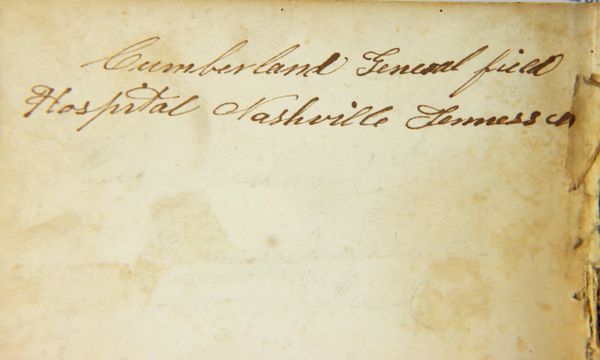 Cumberland General field
Hospital Nashville Tennessee